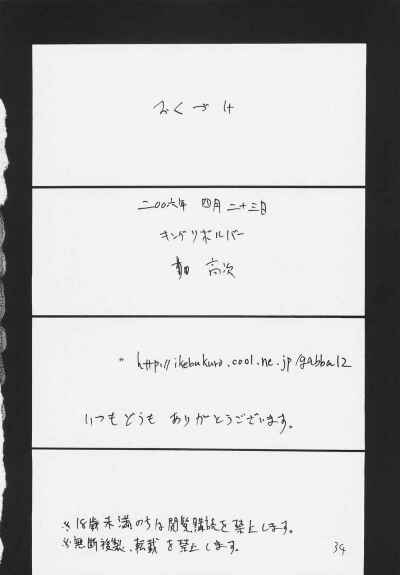 おくづけ
二〇〇六年 四月 二十三日
キングリボルバー
高次
http://ikebukuro.cool.ne.jp/gabba12
いつもどうも ありがとうございます。
※18歳未満の方は閲覧購読を禁止します。
※無断複製、転載を禁止します。
34